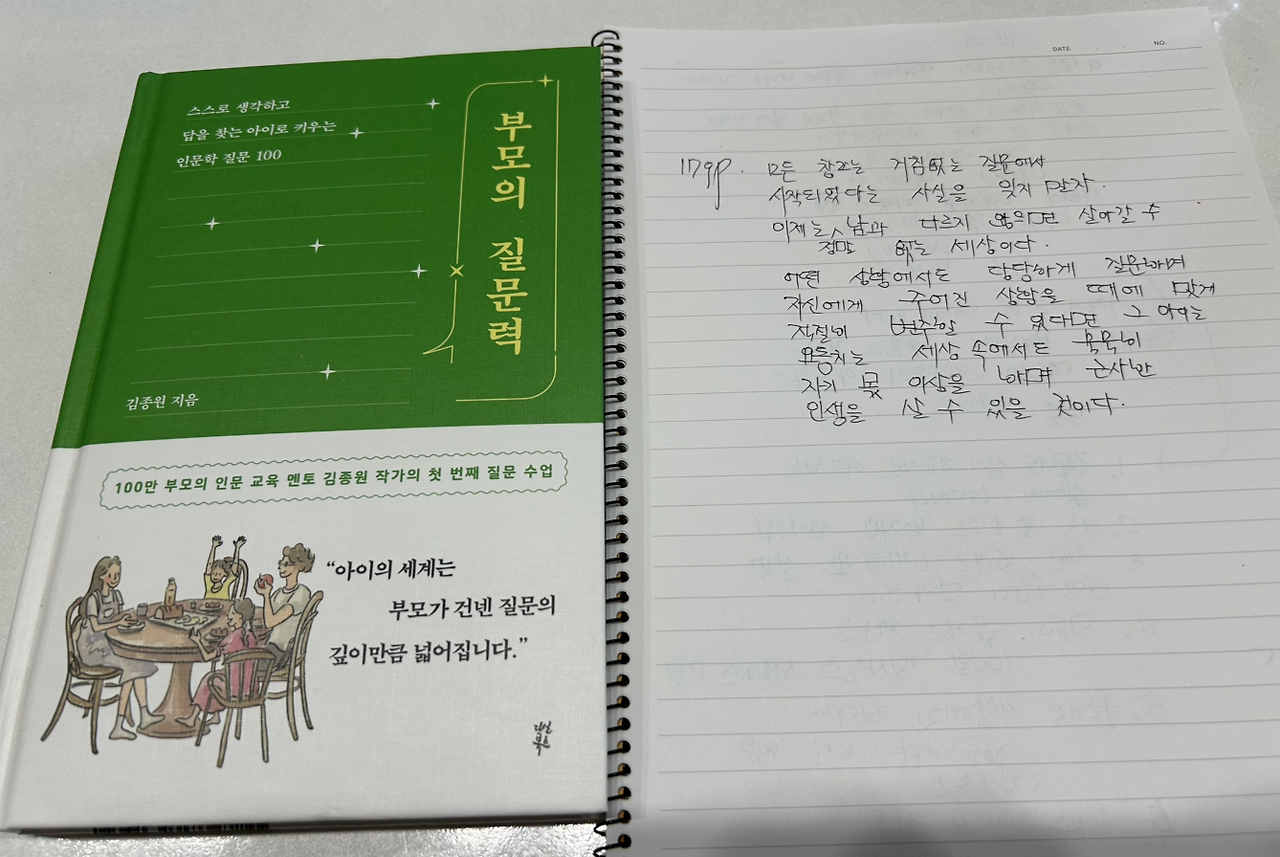 스스로 생각하고
답을 찾는 아이로 키우는
인문학 질문 100
부모의 질문력
김종원 지음
100만 부모의 인문 교육 멘토 김종원 작가의 첫 번째 질문 수업
“아이의 세계는
부모가 건넨 질문의
깊이만큼 넓어집니다.”
다산
북스
DATE. NO.
179p. 모든 창조는 거침없는 질문에서
시작되었다는 사실을 잊지 말자.
이제는 정말 남과 다르지 않으면 살아갈 수
없는 세상이다.
어떤 상황에서도 당당하게 질문하며
자신에게 주어진 상황을 때에 맞게
적절히 변주할 수 있다면 그 아이는
요동치는 세상 속에서도 묵묵히
자기 몫 이상을 해내며 근사한
인생을 살 수 있을 것이다.